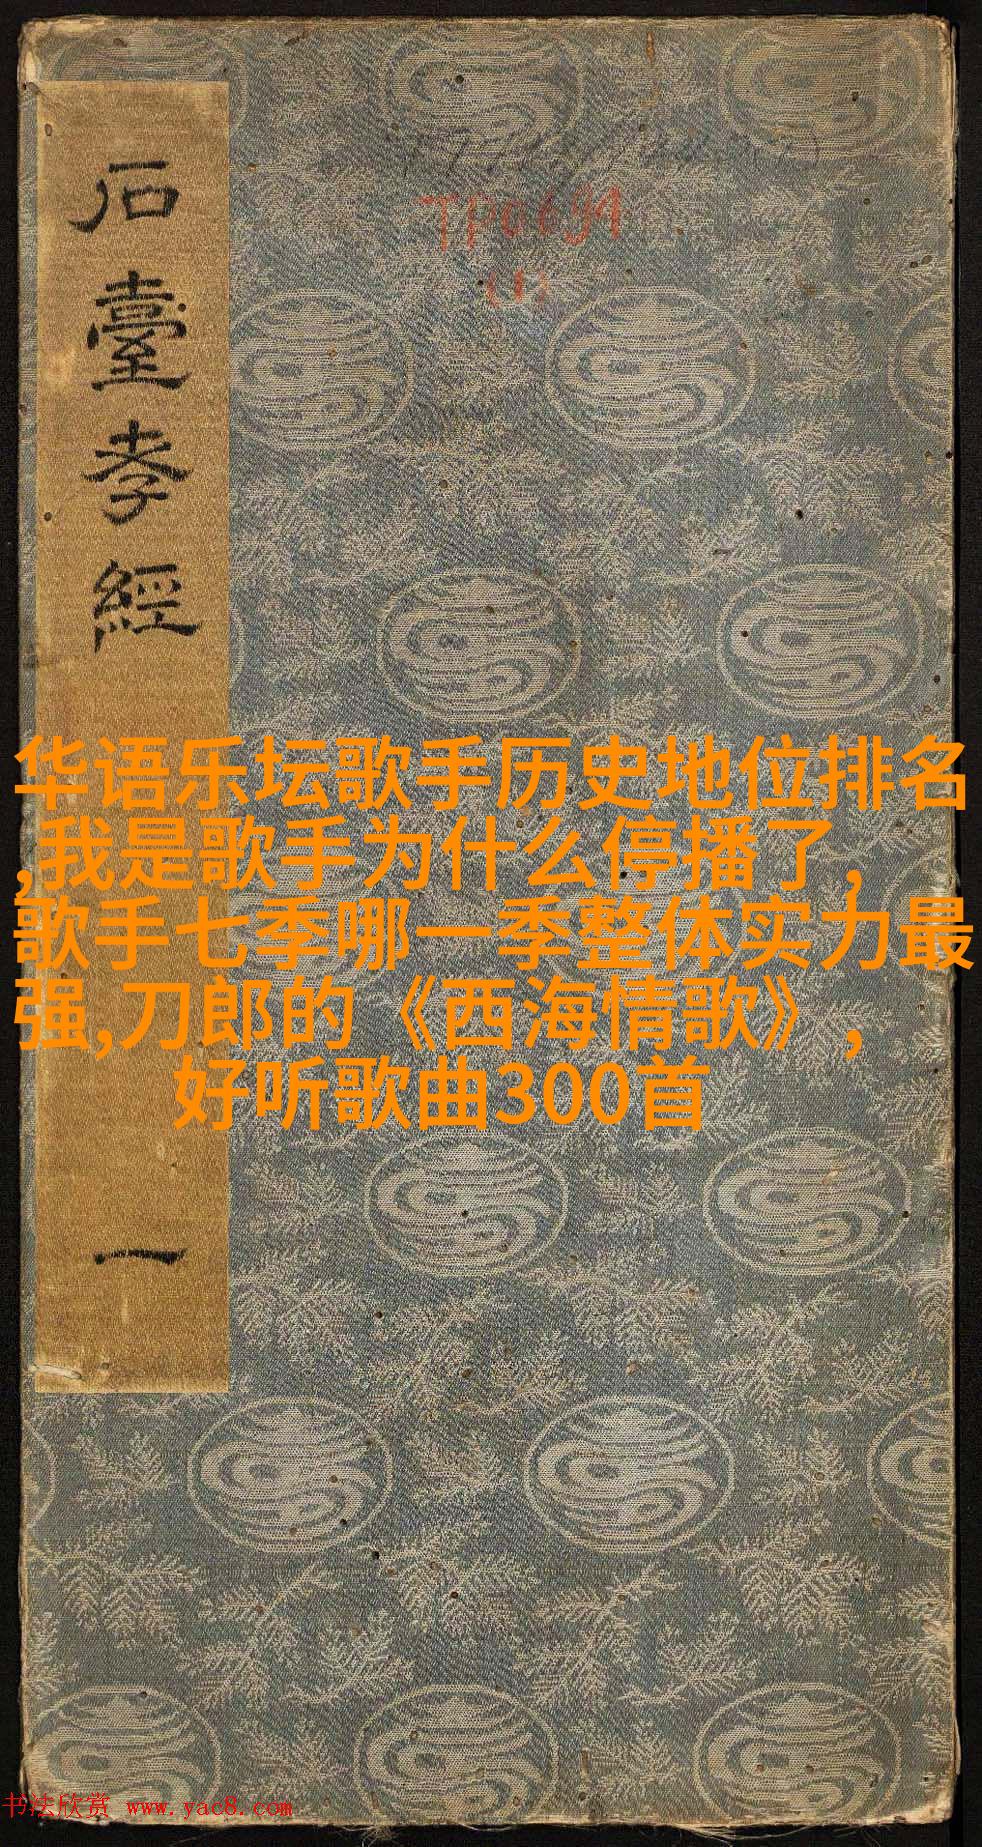 石臺孝經
一
TP0691
(1)
华语乐坛歌手历史地位排名
,我是歌手为什么停播了,
歌手七季哪一季整体实力最
强,刀郎的《西海情歌》,
好听歌曲300首
书法欣赏 www.yac8.com